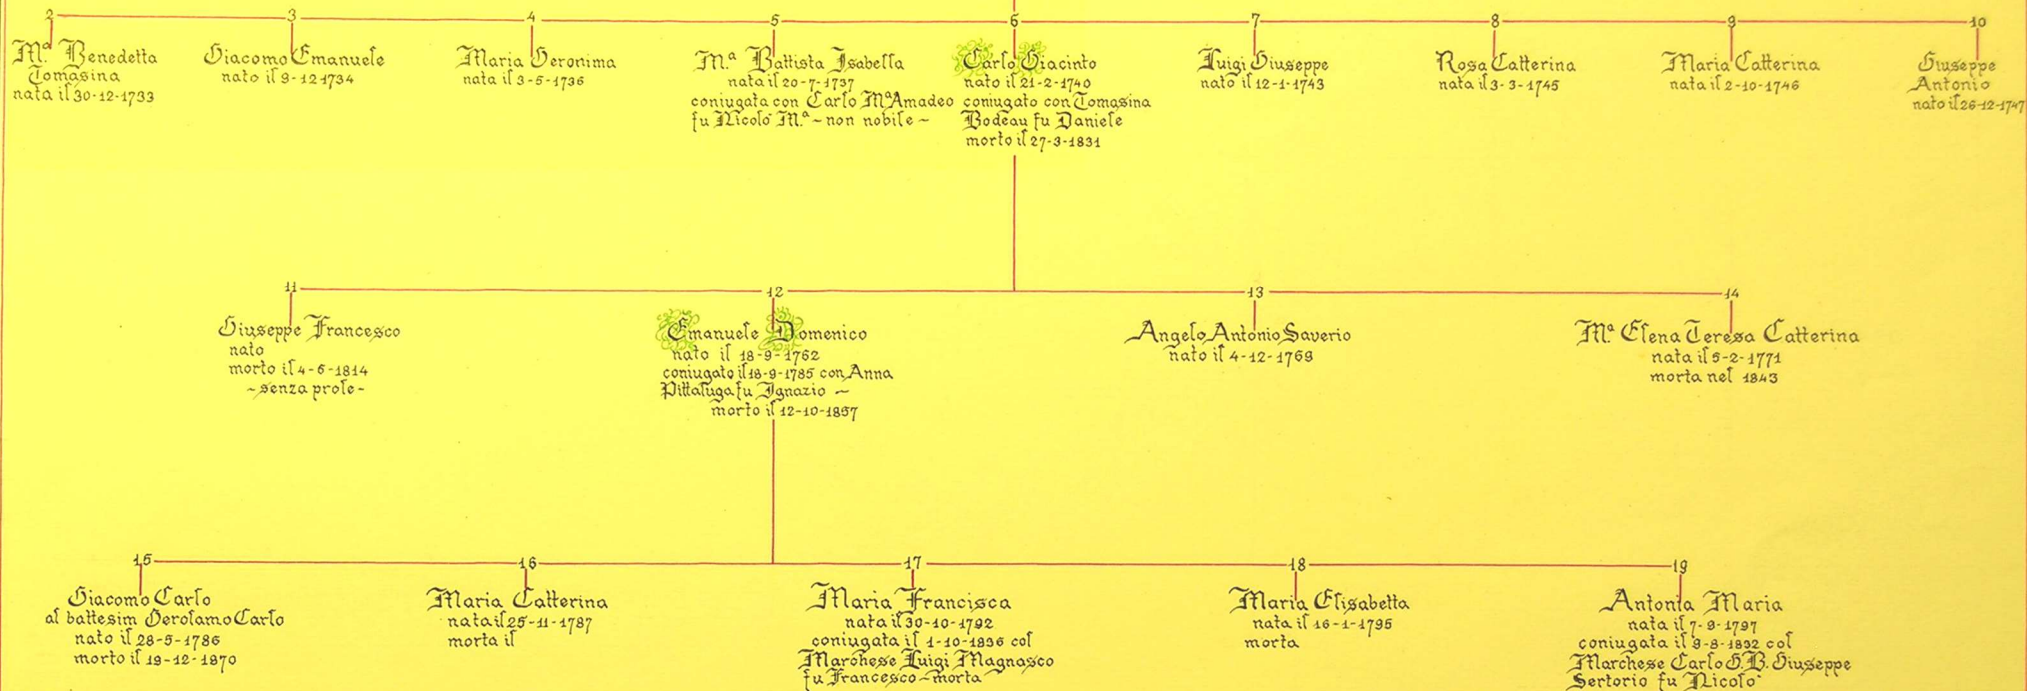 2
Mª. Benedetta
Tomasina
nata il 30-12-1733
3
Giacomo Emanuele
nato il 9-12 1734
4
Maria Geronima
nata il 3-5-1736
5
Mª. Battista Isabella
nata il 20-7-1737
coniugata con Carlo Mª Amadeo
fu Nicolò Mª. - non nobile -
6
Carlo Giacinto
nato il 21-2-1740
coniugato con Tomasina
Bodeau fu Daniele
morto il 27-3-1831
7
Luigi Giuseppe
nato il 12-1-1743
8
Rosa Catterina
nata il 3-3-1745
9
Maria Catterina
nata il 2-10-1746
10
Giuseppe
Antonio
nato il 26-12-1747
11
Giuseppe Francesco
nato
morto il 4-6-1814
-senza prole-
12
Emanuele Domenico
nato il 18-9-1762
coniugato il 18-9-1785 con Anna
Pittaluga fu Ignazio -
morto il 12-10-1857
13
Angelo Antonio Saverio
nato il 4-12-1769
14
Mª. Elena Teresa Catterina
nata il 5-2-1771
morta nel 1843
15
Giacomo Carlo
al battesim Gerolamo Carlo
nato il 28-5-1786
morto il 19-12-1870
16
Maria Catterina
nata il 25-11-1787
morta il
17
Maria Francisca
nata il 30-10-1792
coniugata il 1-10-1836 col
Marchese Luigi Magnasco
fu Francesco - morta
18
Maria Elisabetta
nata il 16-1-1795
morta
19
Antonia Maria
nata il 7-9-1797
coniugata il 9-8-1832 col
Marchese Carlo G.B. Giuseppe
Sertorio fu Nicolò